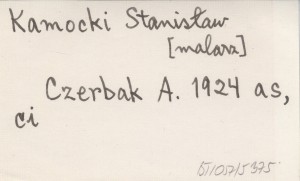 Kamocki Stanisław
[malarz]
Czerbak A. 1924 as,
ci